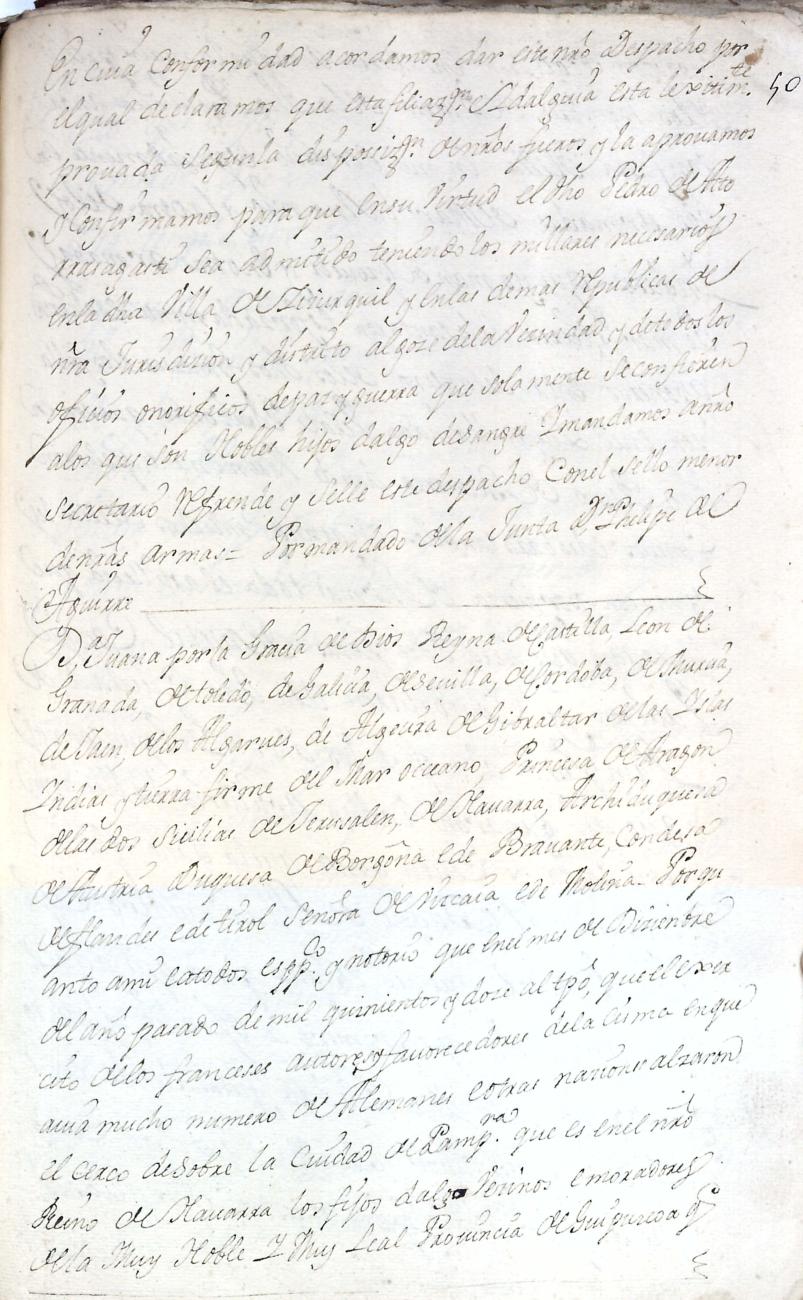 En cuia Conformidad acordamos dar este nrō Despacho por
el qual declaramos que esta filiazgn. e Idalguia esta lexitimte.
50
provada Segun la disposizgn. de nrōs fueros y la aprovamos
y Confirmamos para que en su Virtud el dho Pedro de Ato
rrasagasti Sea admitido teniendo los millares necesarios
en la dha Villa de Zizurquil y en las demas Republicas de
nrā Jurisdizion y distrito al goze de la Vezindad y de todos los
ofizios onorificos de paz y guerra que solamente se confieren
a los que son Nobles hijos dalgo de sangre Y mandamos a nrō
Secretario Refrende y Selle este despacho Con el Sello menor
de nrās armas = Por mandado de la Junta Dn. Phelipe de
Aguirre
Da. Juana por la Gracia de Dios Reyna de Castilla, Leon de
Granada, de toledo, de Galicia, de Sevilla, de Cordoba, de Murcia,
de Jaen, de los Algarves, de Algecira de Gibraltar de las Yslas
Indias y tierra firme del Mar oceano, Princesa de Aragon
de las dos Sicilias de Jerusalen, de Navarra, Archiduquesa
de Austria Duquesa de Borgoña e de Bravante, Condesa
de flandes e de tirol Señora de Vizcaia e de Molina = Por qu
anto a mi e a todos es ppco. y notorio que en el mes de Diziembre
del año pasado de mil quinientos y doze al tpō, que el exer
cito de los franceses autores y favorecedores de la cisma en que
avia mucho numero de Alemanes e otras naziones alzaron
el cerco de sobre la Ciudad de Pampna. que es en el nrō
Reino de Navarra los fijos dalgo Vezinos e moradores
de la Muy Noble Y Muy Leal Provincia de Guipuzcoa q̄